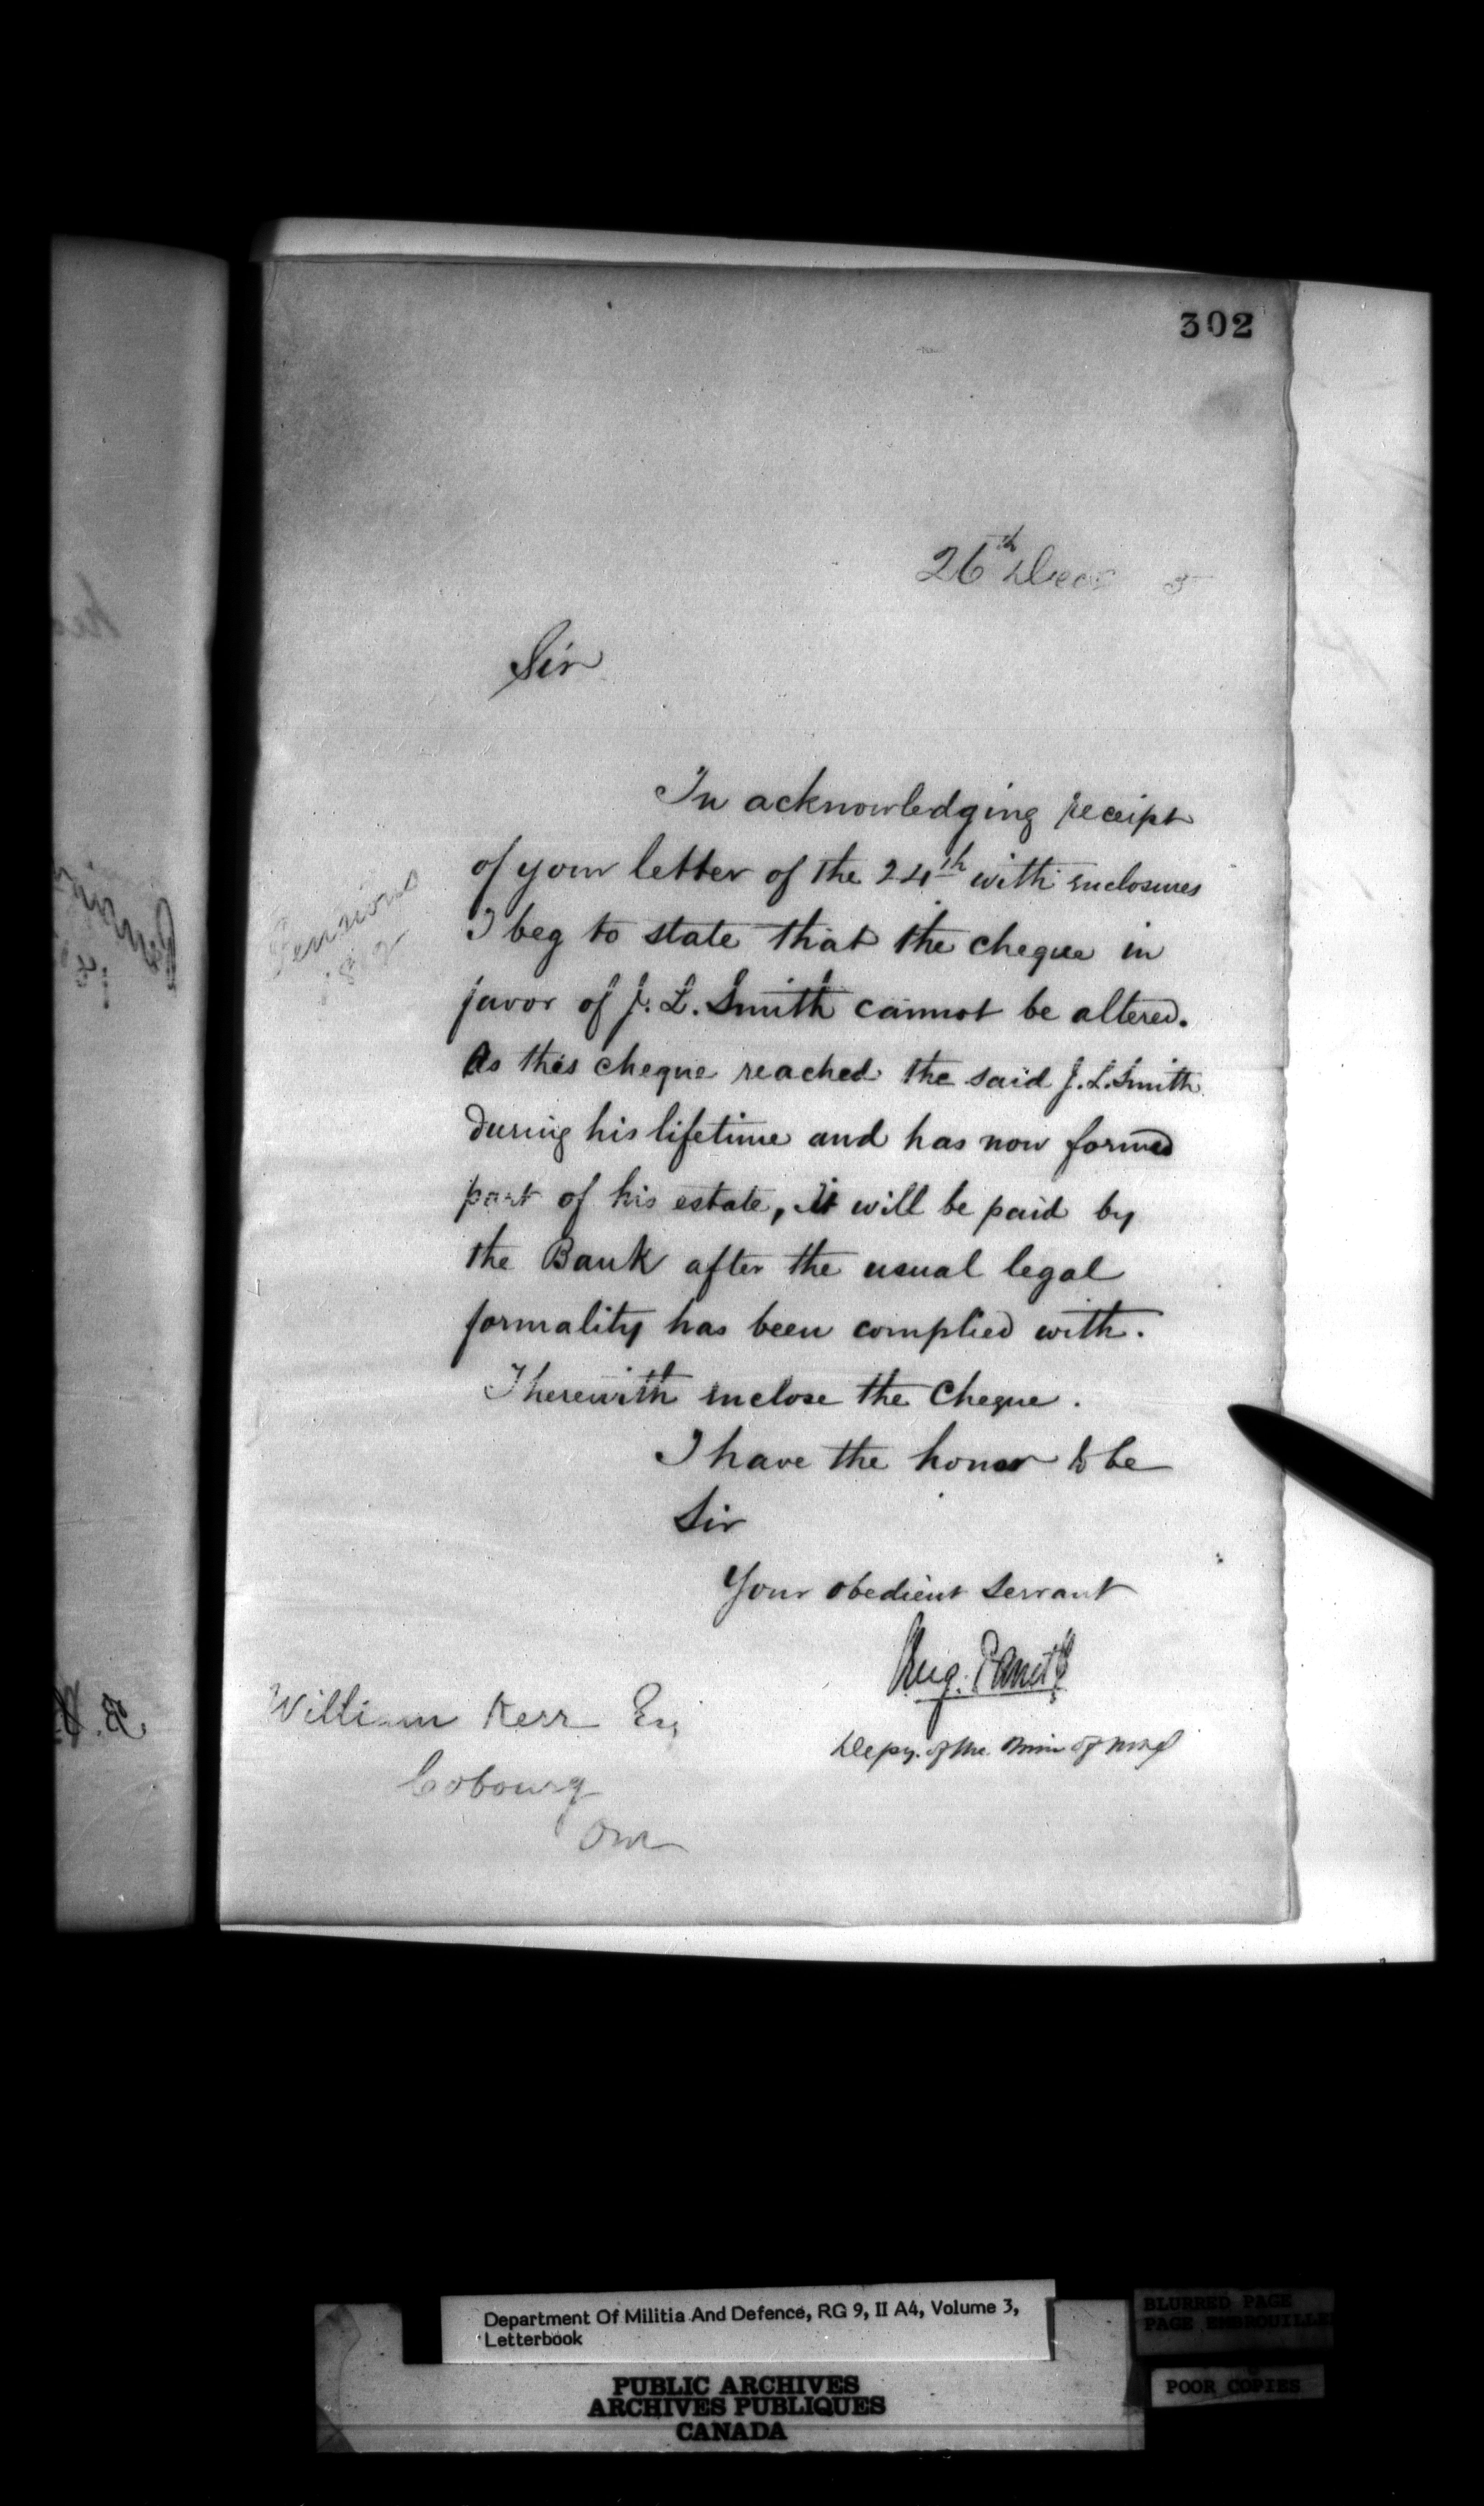 302
26th Decr 5
Sir
In acknowledging receipt
of your letter of the 24th with enclosures
Pensions
1812
I beg to state that the cheque in
favor of J. L. Smith cannot be altered.
As this cheque reached the said J. L. Smith
during his lifetime and has now formed
part of his estate, it will be paid by
the Bank after the usual legal
formality has been complied with.
I herewith enclose the Cheque.
I have the honor to be
Sir
Your obedient servant
Aug. Panet
Depy. of the Min of M & D
William Kerr Esq
Cobourg
Ont
Department Of Militia And Defence, RG 9, II A4, Volume 3,
Letterbook
PUBLIC ARCHIVES
ARCHIVES PUBLIQUES
CANADA
BLURRED PAGE
PAGE EMBROUILLEE
POOR COPIES